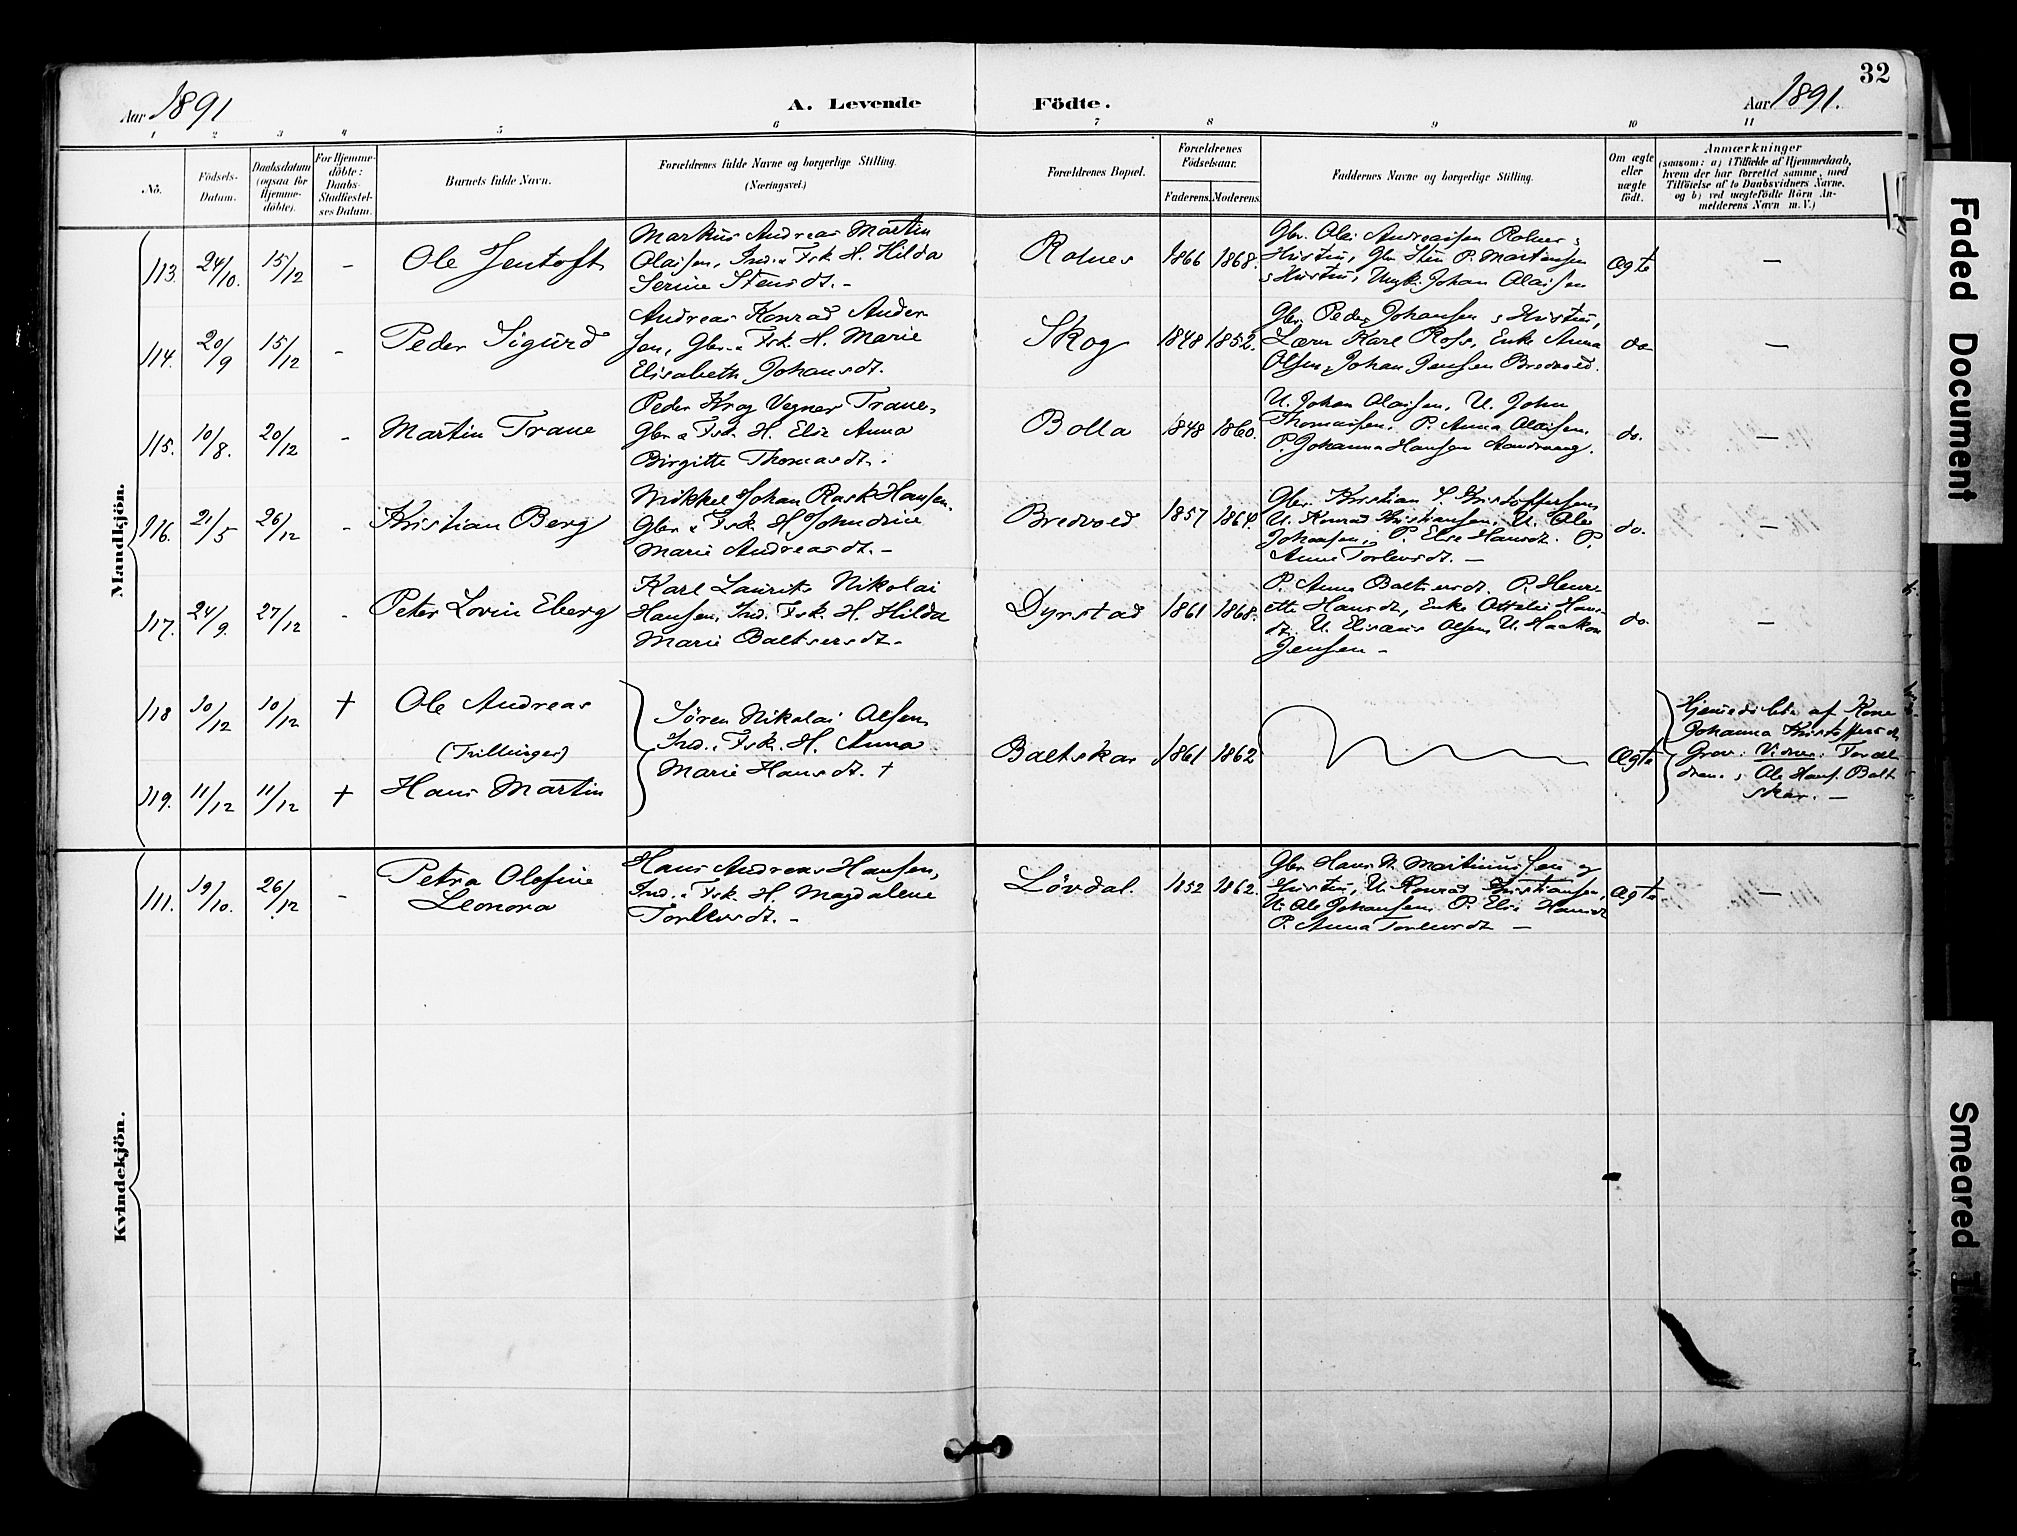 32
Aar 1891
A. Levende
Födte.
Aar 1891.
1 2 3 4 5 6 7 8 9 10 11
No.
Födsels-
Datum.
Daabsdatum
(ogsaa for
Hjemme-
döbte).
For Hjemme-
döbte:
Daabs-
Stadfæstel-
ses Datum.
Barnets fulde Navn.
Forældrenes fulde Navne og borgerlige Stilling.
(Næringsvei.)
Forældrenes Bopæl.
Forældrenes
Födselsaar.
Faderens. Moderens.
Faddernes Navne og borgerlige Stilling.
Om ægte
eller
uægte
født.
Anmærkninger
(saasom: a) i Tilfælde af Hjemmedaab,
hvem der har forrettet samme, med
Tilføielse af to Daabsvidners Navne,
og b) ved uægtefødte Börn An-
melderens Navn m. V.)
Mandkjön.
113. 24/10. 15/12 - Ole Jentoft
Markus Andreas Martin
Olaisen, Ind. & Fsk. H. Hilda
Serine Stensdt. -
Rolnes 1866 1868.
Gbr. Olai Andreassen Rolnes &
Hustru, Gbr Sten P. Martinsen
& Hustru, Ungk. Johan Olaisen
Ægte —
114. 20/9 15/12 - Peder Sigurd
Andreas Konrad Ander
sen, Gbr. & Fsk. H. Marie
Elisabeth Johansdt.
Skog 1848 1852.
Gbr. Peder Johansen & Hustru,
Lærer Karl Ross, Enke Anna
Olsen, Johan Jensen Bredvold.
do —
115. 10/8. 20/12 - Martin Trane
Peder Krog Vegner Trane,
Gbr & Fsk. H. Else Anna
Birgitte Thomasdt.
Bolla 1848 1860.
U. Johan Olaisen, U. John
Thomassen, P. Anna Olaisen,
P. Johanna Hansen
do. —
116. 21/5 26/12 - Kristian Berg
Mikkel Johan Rask Hansen,
Gbr & Fsk. H. Johndine
Marie Andreasdt. -
Bredvold 1857 1864.
Gbr. Kristian S. Kristoffersen
U. Konrad Kristiansen, U. Ole
Johansen, P. Else Hansdt. P.
Anne Torleivsdt. -
do. —
117. 24/9. 27/12 - Peter Lorin Eberg
Karl Laurits Nikolai
Hansen, Ind. Fsk. H. Hilda
Marie Baltsersdt. -
Dyrstad 1861 1868.
P. Anne Baltsersdt. P. Henri-
ette Hansdt, Enke Ottelie Hans-
dt. U. Elisæus Olsen, U. Haakon
Jensen -
do. —
118 10/12 10/12 † Ole Andreas
(Tvillinger)
119. 11/12 11/12 † Hans Martin
Søren Nikolai Olsen
Ind. & Fsk. H. Anna
Marie Hansdt. †
Baltskar 1861 1862
Ægte
Hjemmedøbte af Kone
Johanna Kristoffersdt.
Grav. Vidner: Foræl
drene & Ole Hans. Balt
skar. —
Kvindekjön.
111. 19/10. 26/12 - Petra Olefine
Leonora
Hans Andreas Hansen,
Ind. & Fsk. H. Magdalene
Torleivsdt. -
Løvdal. 1852 1862.
Gbr Hans N. Martinussen og
Hustru, U. Konrad Kristiansen,
U. Ole Johansen. P. Else Hansdt
P. Anna Torleivsdt —
Ægte —
Faded Document
Smeared